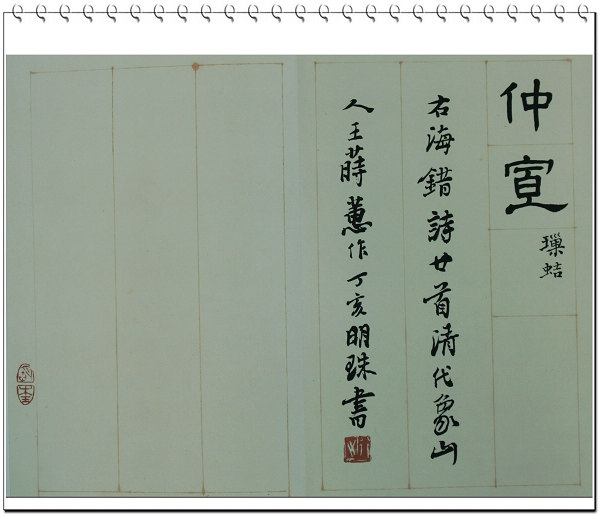 仲宣
璅蛣
右海錯詩廿首清代象山
人王蒔蕙作丁亥明珠書